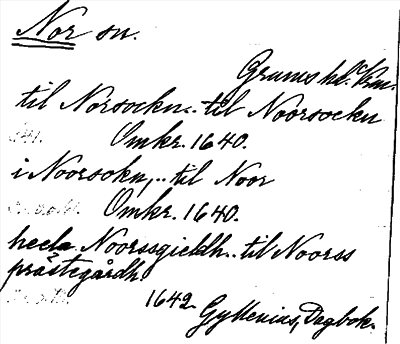 Nor sn.
Grums hd. Km.
til Norsockn.. til Noorsockn
Omkr. 1640.
i Noorsokn,.. til Noor
Omkr. 1640.
heela Noorssgieldh.. til Noorss
prästegårdh.
1642. Gyllenius, Dagbok.